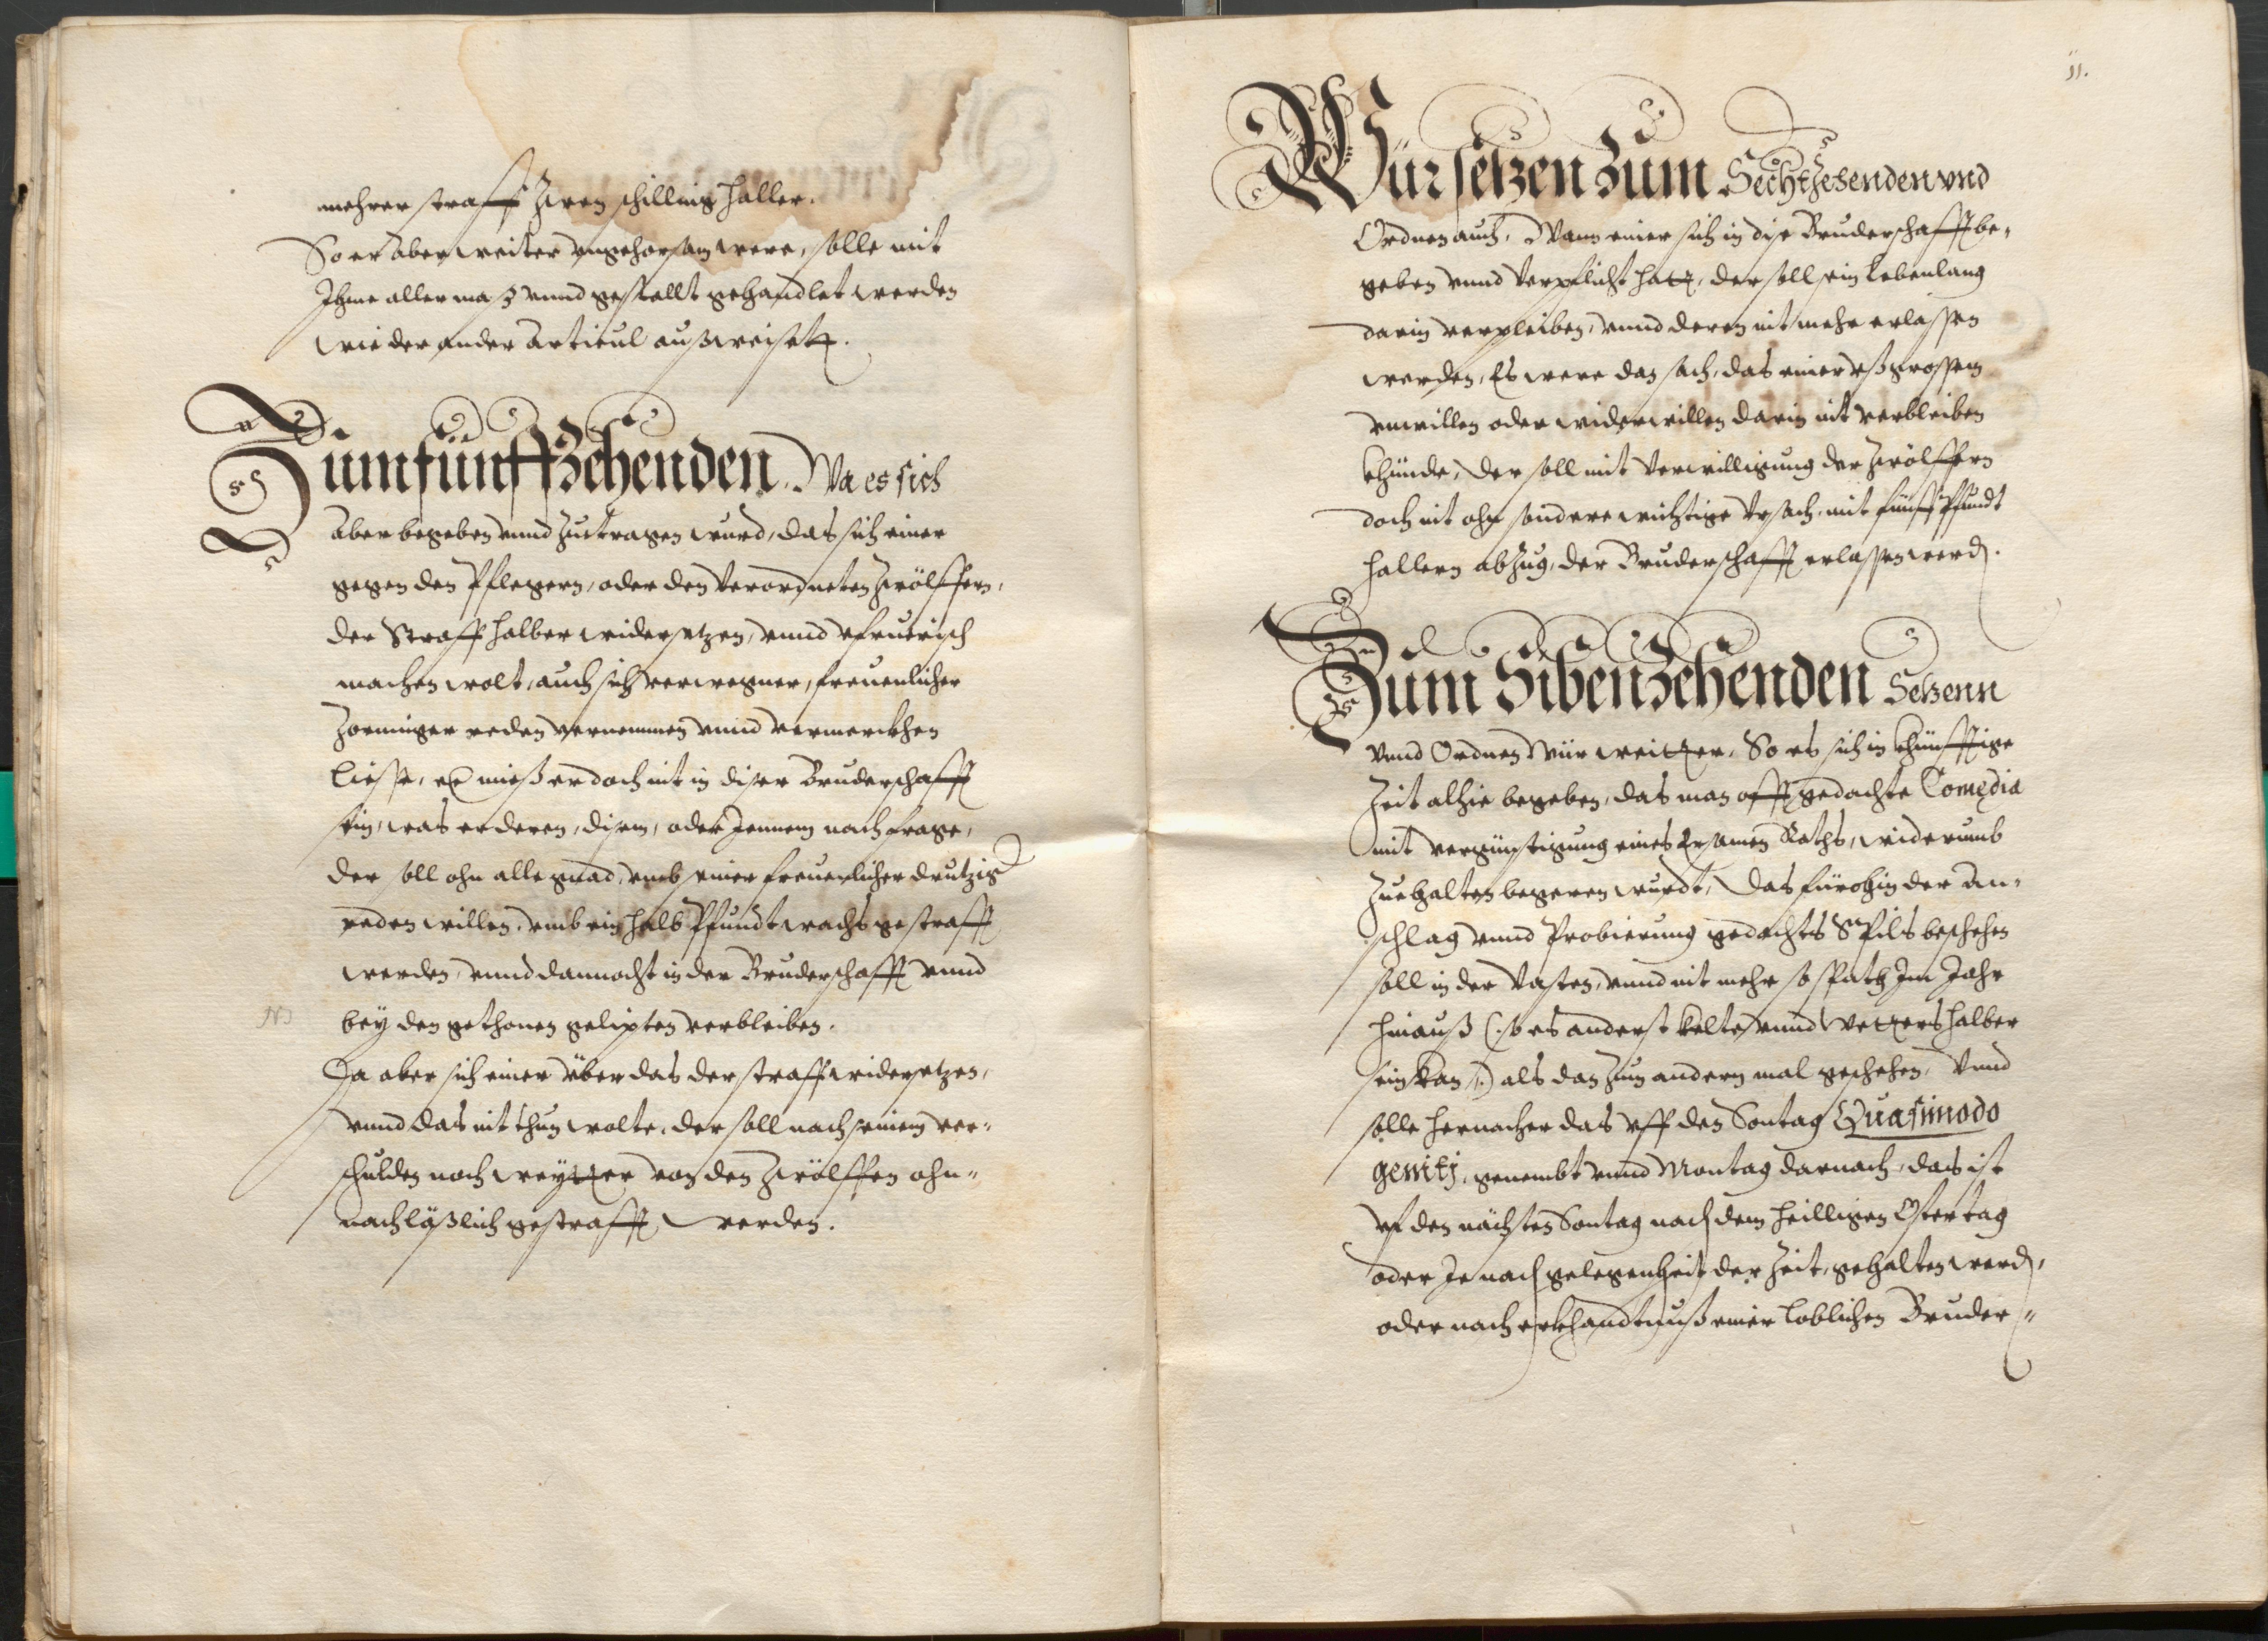 mehrer straff zwen schilling haller.
So er aber weiter vngehorsam were, solle mit
Ihme aller maß vnnd gestallt gehandlet werden
wie der ander Articul außweisett.
Zum fünffzehenden. Wa es sich
aber begeben vnnd zuetragen wurd, das sich einer
gegen den Pflegern, oder den verordneten zwölffern,
der Straff halber widersetzen, vnnd vfruerisch
machen wolt, auch sich verwegner, freuenlicher
zorniger reden vernemmen vnnd vermerckhen
liesse, mieß er doch nit in diser Bruderschafft
sein, was er deren, disem, oder Jennem nach frage,
der soll ohn alle gnad, vmb seiner freuenlicher drutzig
reden willen, vmb ein halb Pfundt wachs gestrafft
werden, vnnd dannocht in der Bruderschafft vnnd
NB
bey den gethonen gelipten verbleiben.
Da aber sich einer über das der straff widersetzen,
vnnd das nit thun wolte, der soll nach seinem ver-
schulden noch weytter von den zwölffen ohn-
nachläßlich gestrafft werden.
11.
Wür setzen zum Sechtzehenden vnd
Ordnen auch, Wann einer sich in dise Bruderschafft be-
geben vnnd verpflicht hatt, der soll sein lebenlang
darin verpleiben, vnnd deren nit mehr erlassen
werden, Es were dan sach, das einer vß grossem
vnwillen oder widerwillen darin nit verbleiben
khünde, der soll mit verwilligung der zwölffern
doch nit ohn sondere wichtige vrsach, mit fünff Pfundt
hallern abzug, der Bruderschafft erlassen werd.
Zum Sibenzehenden Setzenn
vnnd Ordnen wür weitter, So es sich in khünfftige
zeit alhie begeben, das man offtgedachte Comedia
mit vergünstigung eines Ersamen Raths, widerumb
zuehalten begeren wurdt, das fürohin der An-
schlag vnnd Probierung gedachts Spils beschehen
soll in der vasten, vnnd nit mehr so spath Im Jahr
hinauß (: so es anderst kelte vnnd wetters halber
sein kan :) als dan zum andern mal geschehen, vnnd
solle hernacher das vff den Sontag Quasimodo
genitj, genembt vnnd Montag darnach, das ist
vf den nächsten Sontag nach dem heilligen Ostertag
oder Je nach gelegenheit der zeit, gehalten werd,
oder nach erkhandtnuß einer loblichen Bruder-